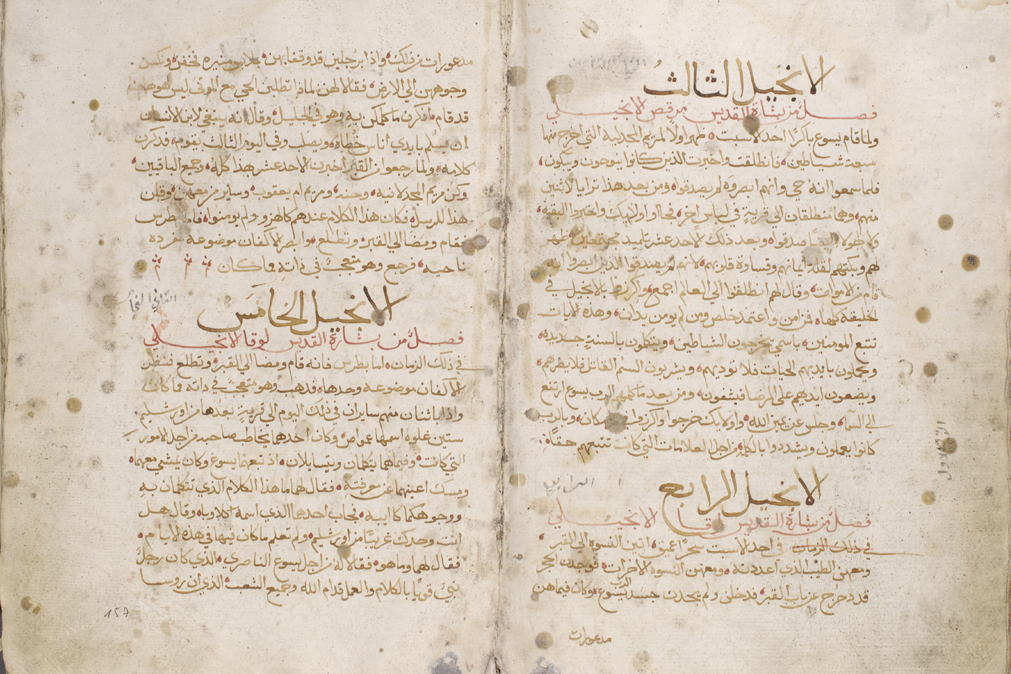 الانجيل الثالث
فصل من بشارة القديس مرقص الانجيلي
ولما قام يسوع باكرًا احد الاسبت ظهر اولا لمريم المجدلية التي اخرج منها
سبعة شياطين فانطلقت واخبرت الذين كانوا ينوحون ويبكون
فلما سمعوا انه حي وانهم ابصروه لم يصدقوا ومن بعد هذا ترايا لاثنين
منهم وهما منطلقان الي قرية في لباس اخر فجا اوليك واخبروا البقية
ولا لهولا ايضا صدقوا وبعد ذلك لاحد عشر تلميد ظهر
لهم وبكتهم لقلة ايمانهم وقساوة قلوبهم لانهم لم يصدقوا الذين ابصروا انه
قام من الاموات وقال لهم انطلقوا الي العالم اجمع واكرزوا بالانجيل في
الخليقة كلها فمن امن واعتمد خلص ومن لم يومن يدان وهذه الايات
تتبع المومنين باسمي يخرجون الشياطين ويتكلمون بالسنة جديده
ويحملون بايديهم الحيات فلا توديهم ويشربون السم القاتل فلا يضرهم
ويضعون ايديهم علي المرضا فيشفون ومن بعد ما كلمهم الرب يسوع ارتفع
الي السما وجلس عن يمين الله واوليك خرجوا وكرزوا في كل مكان وبالرب
كانوا يعملون ويشددوا بالكلمة من اجل العلامات التي كانت تتبعهم حقًا
الانجيل الرابع
فصل من بشارة القديس لوقا الانجيلي
في ذلك الزمان في احد الاسبت سحرًا عميق اتين النسوة الي القبر
ومعهن الطيب الذي اعددنه ومعهن النسوه الاخرات فوجدن الحجر
قد دحرج عن باب القبر فدخلن ولم يجدن جسد الرب يسوع وكان فيما هن
مدعورات
مدعورات من ذلك واذا برجلين قد وقفا بهن بملابس منيره فخفن ونكسن
وجوههن الي الارض فقالا لهن لماذا تطلبن الحي مع الموتي ليس هو هاهنا
قد قام فاذكرن ما كلمكن به وهو في الجليل وقال انه ينبغي لابن الانسان
ان يسلم بايدي اناس خطاه ويصلب وفي اليوم الثالث يقوم فذكرن
كلامه ولما رجعوا من القبر اخبرن الاحد عشر بهذا كله وجميع الباقين
وكن مريم المجدلانية وحنه ومريم ام يعقوب وساير من معهن وقلن
هذا للرسل فكان هذا الكلام عندهم كالهزو ولم يومنوا فاما بطرس
فقام ومضا الي القبر وتطلع وابصر الاكفان موضوعة مفرده
ناحية فرجع وهو متعجب في ذاته مما كان
الانجيل الخامس
فصل من بشارة القديس لوقا الانجيلي
في ذلك الزمان اما بطرس فانه قام ومضا الي القبر وتطلع فنظر
الاكفان موضوعة وحدها فذهب وهو متعجب في داته مما كان
واذا باثنان منهم سايران في ذلك اليوم الي قرية بعدها من اورشليم
ستين غلوه اسمها عمواس وكان احدهما يخاطب صاحبه من اجل الامور
التي كانت وفيما هما يتكلمان ويتسايلان اذ تبعهما يسوع وكان يمشي معهما
ومسك اعينهما عن معرفته فقال لهما ما هذا الكلام الذي تتكلمان به
ووجوهكما كايبة فاجاب احدهما الذي اسمه اكلاوبا وقال هل
انت وحدك غريبًا من اورشليم ولم تعلم ما كان فيها في هذه الايام
فقال لهما وما هو فقالا له من اجل يسوع الناصري الذي كان رجل
نبي قويًا بالكلام والعمل قدام الله وجميع الشعب الذي ان روسا